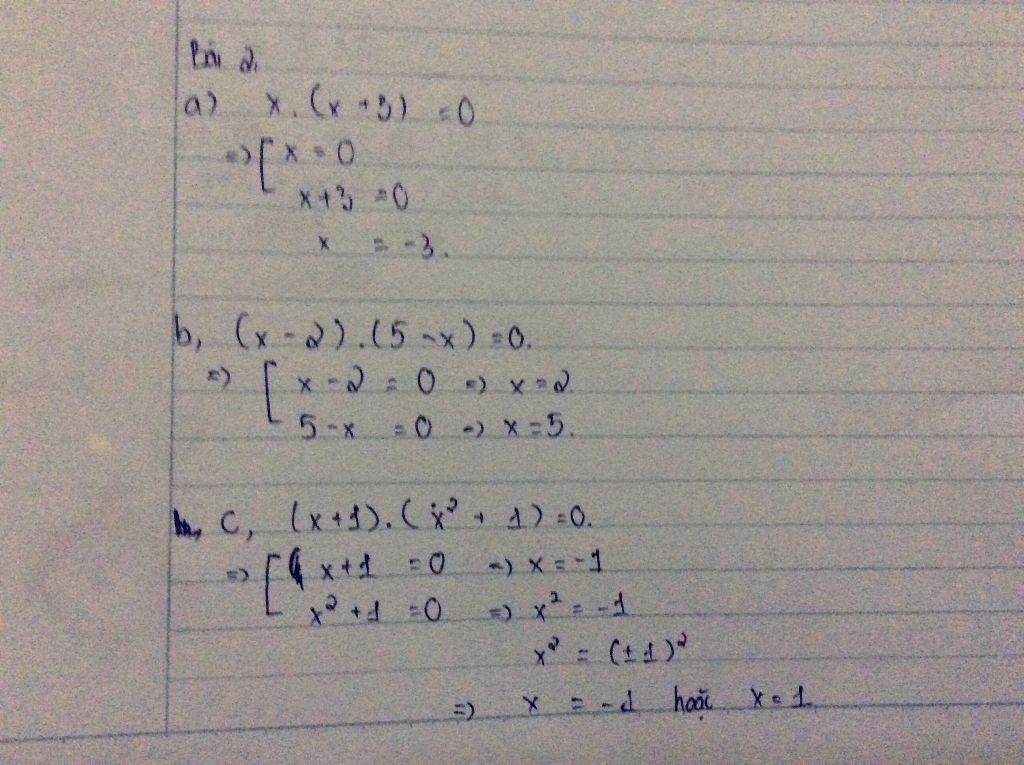 Bài 2.
a) x. (x + 3) = 0
=> [ x = 0
x+3 = 0
x = -3.
b, (x - 2).(5 - x) = 0.
=> [ x - 2 = 0 => x = 2.
5 - x = 0 => x = 5.
c, (x+1).(x² + 1) = 0.
=> [ x+1 = 0 => x = -1
x² + 1 = 0 => x² = -1
x² = (±1)²
=> x = -1 hoặc x = 1